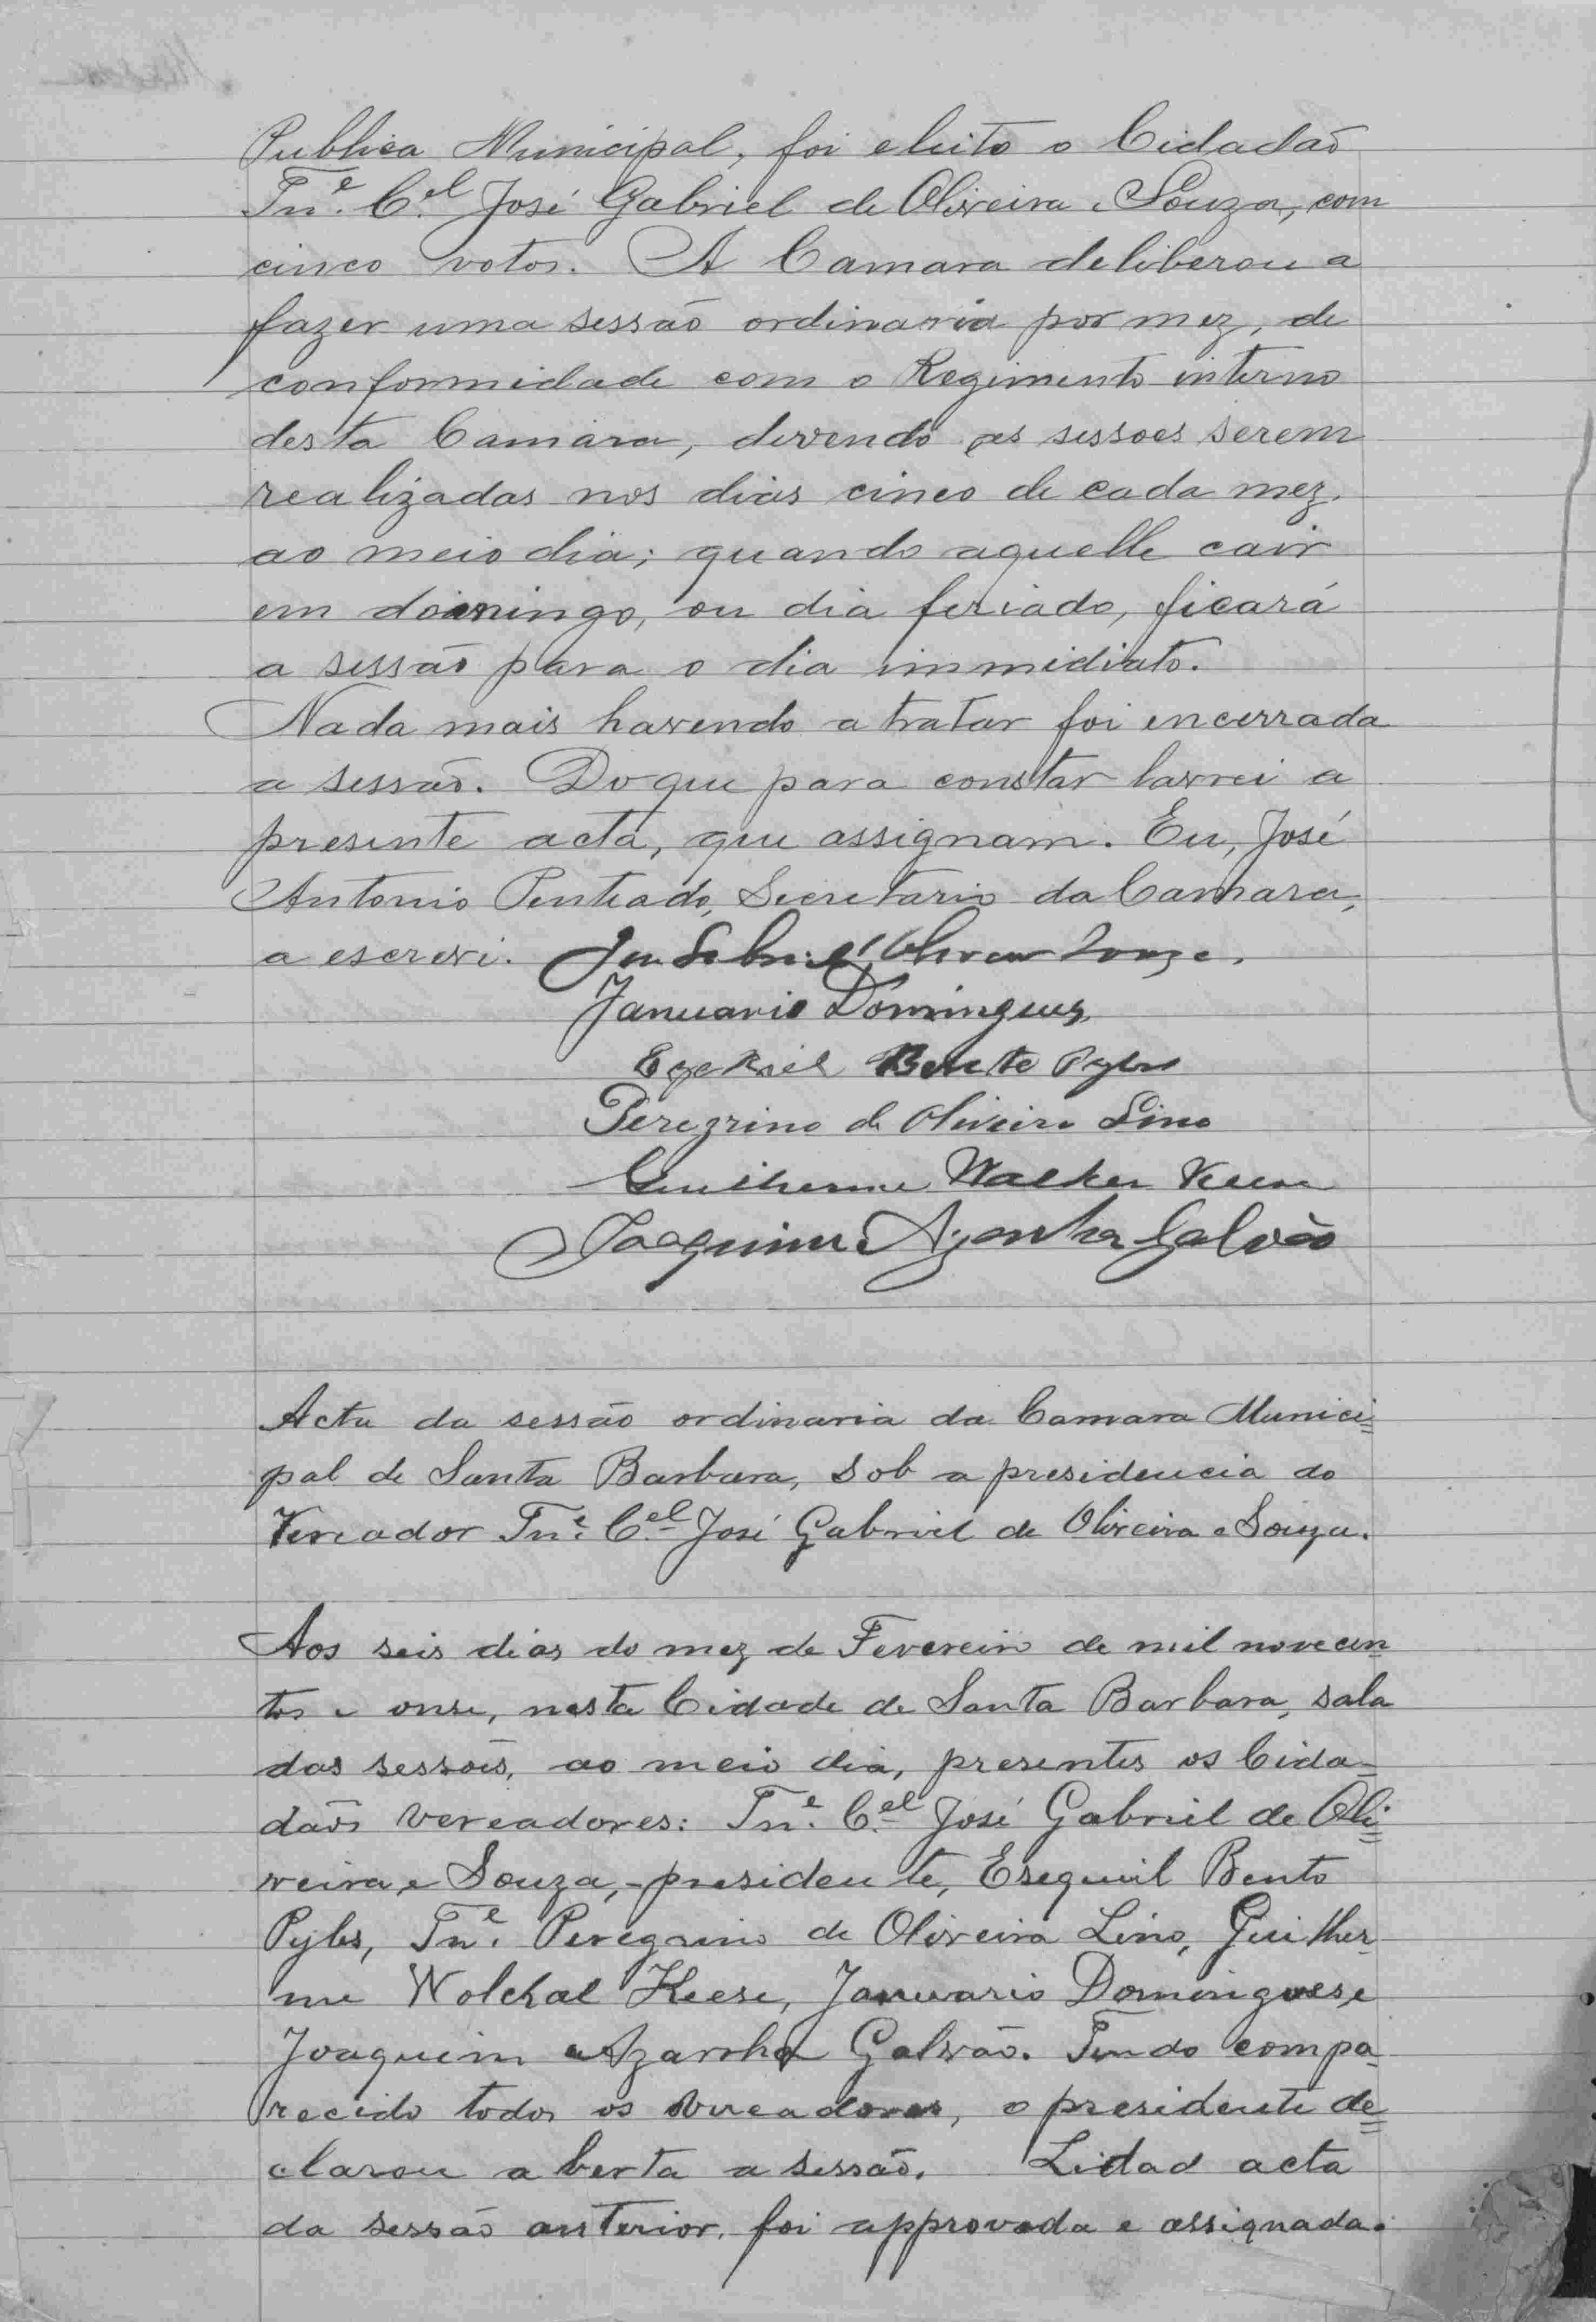 Publica Municipal, foi eleito o Cidadão
Tn.e C.el José Gabriel de Oliveira e Souza, com
cinco votos. A Camara deliberou a
fazer uma sessão ordinaria por mez, de
conformidade com o Regimento interno
desta Camara, devendo as sessoes serem
realizadas nos dias cinco de cada mez,
ao meio dia; quando aquelle cair
em domingo, ou dia feriado, ficará
a sessão para o dia immediato.
Nada mais havendo a tratar foi encerrada
a sessão. Do que para constar lavrei a
presente acta, que assignam. Eu, José
Antonio Penteado, Secretario da Camara,
a escrevi. José Gabriel Oliveira Souza.
Januario Domingues
Ezekiel Bente Pyles
Peregrino de Oliveira Lino
Guilherme Walker Keese
Joaquim Azanha Galvão
Acta da sessão ordinaria da Camara Munici=
pal de Santa Barbara, sob a presidencia do
Vereador Tn.e C.el José Gabriel de Oliveira e Souza.
Aos seis dias do mez de Fevereiro de mil novecen
tos e onse, nesta Cidade de Santa Barbara, sala
das sessões, ao meio dia, presentes os Cida-
dãos vereadores: Tn.e C.el José Gabriel de Oli=
veira e Souza, presidente, Esequiel Bento
Pyles, Tn.e Peregrino de Oliveira Lino, Guilher
me Wolchal Keese, Januario Domingues, e
Joaquim Azanha Galvão. Tendo compa
recido todos os vereadores, o presidente de=
clarou aberta a sessão. Lida a acta
da sessão anterior, foi approvada e assignada.